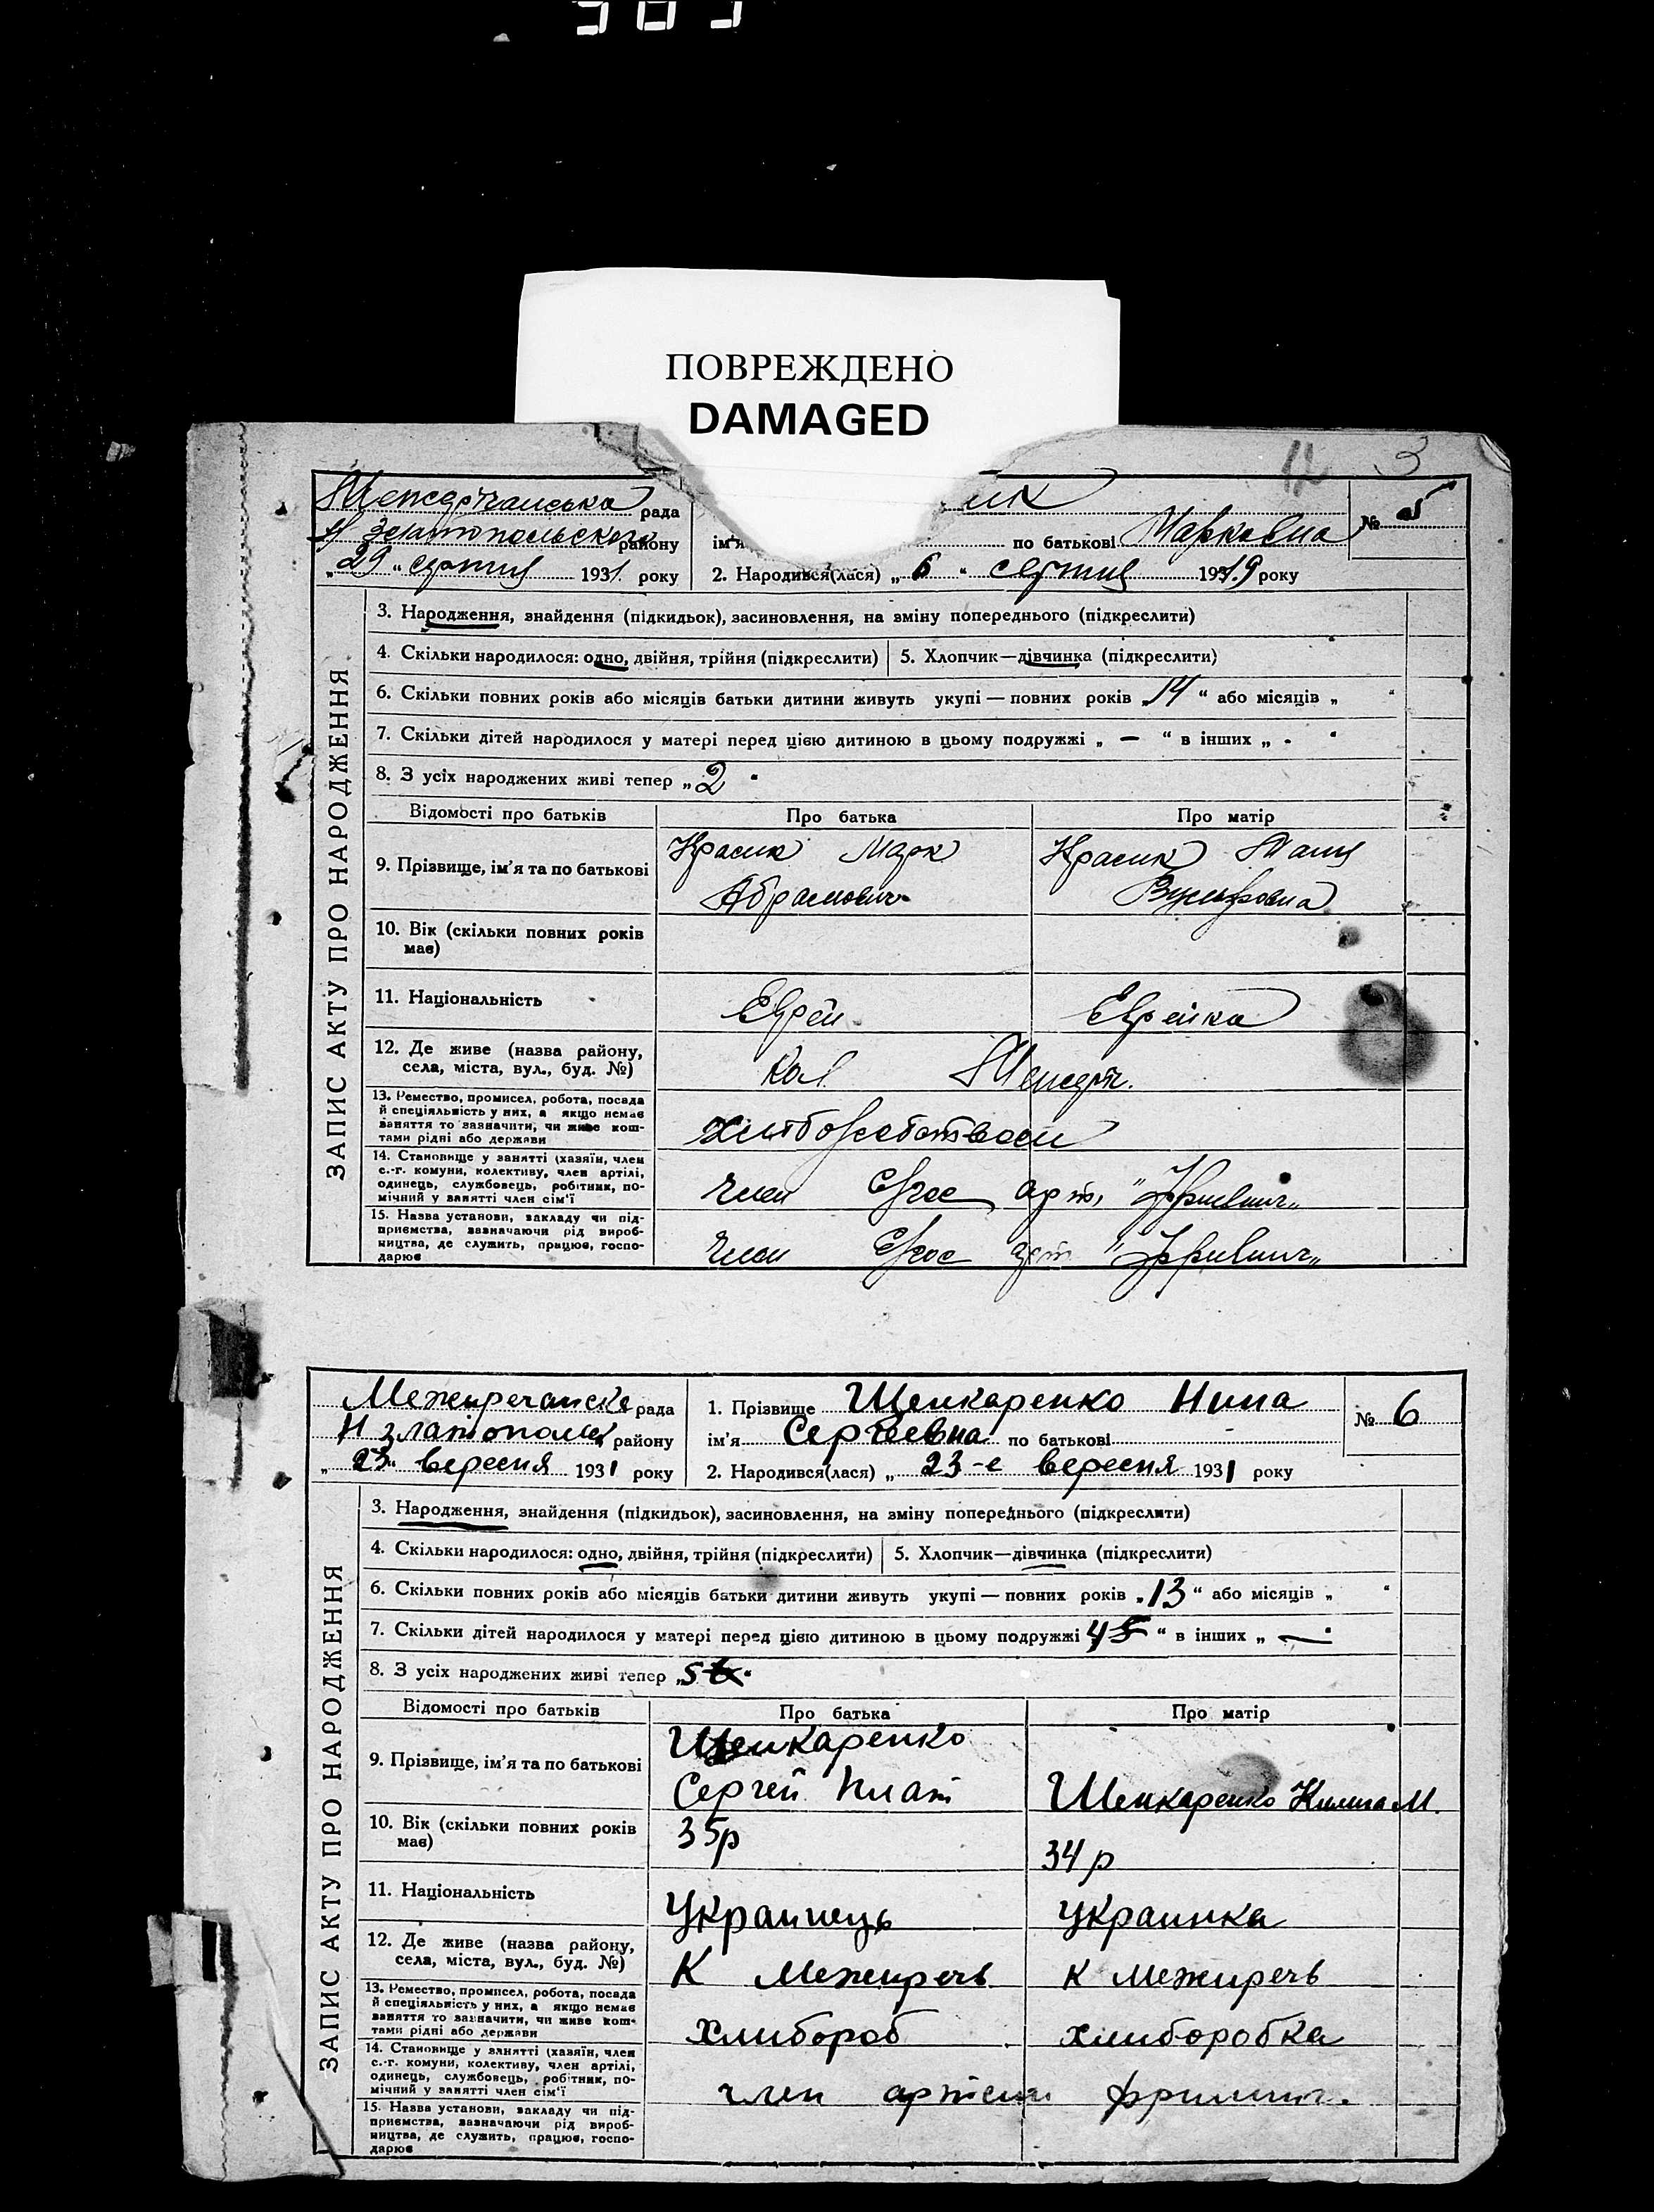 ПОВРЕЖДЕНО
DAMAGED
12 3
рада
ик
№ 5
району
ім'я по батькові Марковна
„29“ серпня 1931 року
2. Народився(лася) „6“ серпня 1919 року
ЗАПИС АКТУ ПРО НАРОДЖЕННЯ
3. Народження, знайдення (підкидьок), засиновлення, на зміну попереднього (підкреслити)
4. Скільки народилося: одно, двійня, трійня (підкреслити) 5. Хлопчик—дівчинка (підкреслити)
6. Скільки повних років або місяців батьки дитини живуть укупі — повних років „14“ або місяців „ “
7. Скільки дітей народилося у матері перед цією дитиною в цьому подружжі „ — “ в інших „ - “
8. З усіх народжених живі тепер „2“
Відомості про батьків Про батька Про матір
9. Прізвище, ім'я та по батькові
Красик Марк
Абрамович
Красик
10. Вік (скільки повних років має)
11. Національність
Еврей Еврейка
12. Де живе (назва району,
села, міста, вул., буд. №)
Кол
13. Ремество, промисел, робота, посада
й спеціяльність у них, а якщо немає
заняття то зазначити, чи живе кош-
тами рідні або держави
14. Становище у занятті (хазяїн, член
с.-г. комуни, колективу, член артілі,
одинець, службовець, робітник, по-
мічний у занятті член сім'ї
член арт.
15. Назва установи, закладу чи під-
приємства, зазначаючи рід вироб-
ництва, де служить, працює, госпо-
дарює
член арт
рада
1. Прізвище Щенкаренко Нина
№ 6
району
ім'я Сергеевна по батькові
„23“ вересня 1931 року
2. Народився(лася) „23-е вересня 1931 року
ЗАПИС АКТУ ПРО НАРОДЖЕННЯ
3. Народження, знайдення (підкидьок), засиновлення, на зміну попереднього (підкреслити)
4. Скільки народилося: одно, двійня, трійня (підкреслити) 5. Хлопчик—дівчинка (підкреслити)
6. Скільки повних років або місяців батьки дитини живуть укупі — повних років „13“ або місяців „ “
7. Скільки дітей народилося у матері перед цією дитиною в цьому подружжі 4 5 “ в інших „ —
8. З усіх народжених живі тепер „5
Відомості про батьків Про батька Про матір
9. Прізвище, ім'я та по батькові
Щенкаренко
Сергей Плат
Щенкаренко М.
10. Вік (скільки повних років має)
35р
34р
11. Національність
Украинець украинка
12. Де живе (назва району,
села, міста, вул., буд. №)
К Межиречь К Межиречь
13. Ремество, промисел, робота, посада
й спеціяльність у них, а якщо немає
заняття то зазначити, чи живе кош-
тами рідні або держави
хлибороб хлиборобка
14. Становище у занятті (хазяїн, член
с.-г. комуни, колективу, член артілі,
одинець, службовець, робітник, по-
мічний у занятті член сім'ї
член артели
15. Назва установи, закладу чи під-
приємства, зазначаючи рід вироб-
ництва, де служить, працює, госпо-
дарює